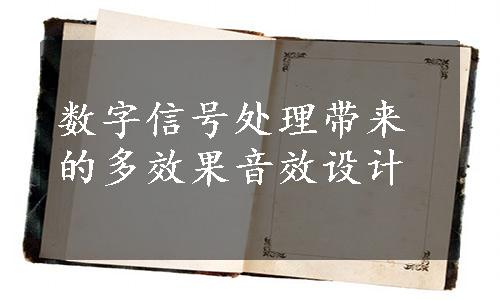 数字信号处理带来
的多效果音效设计